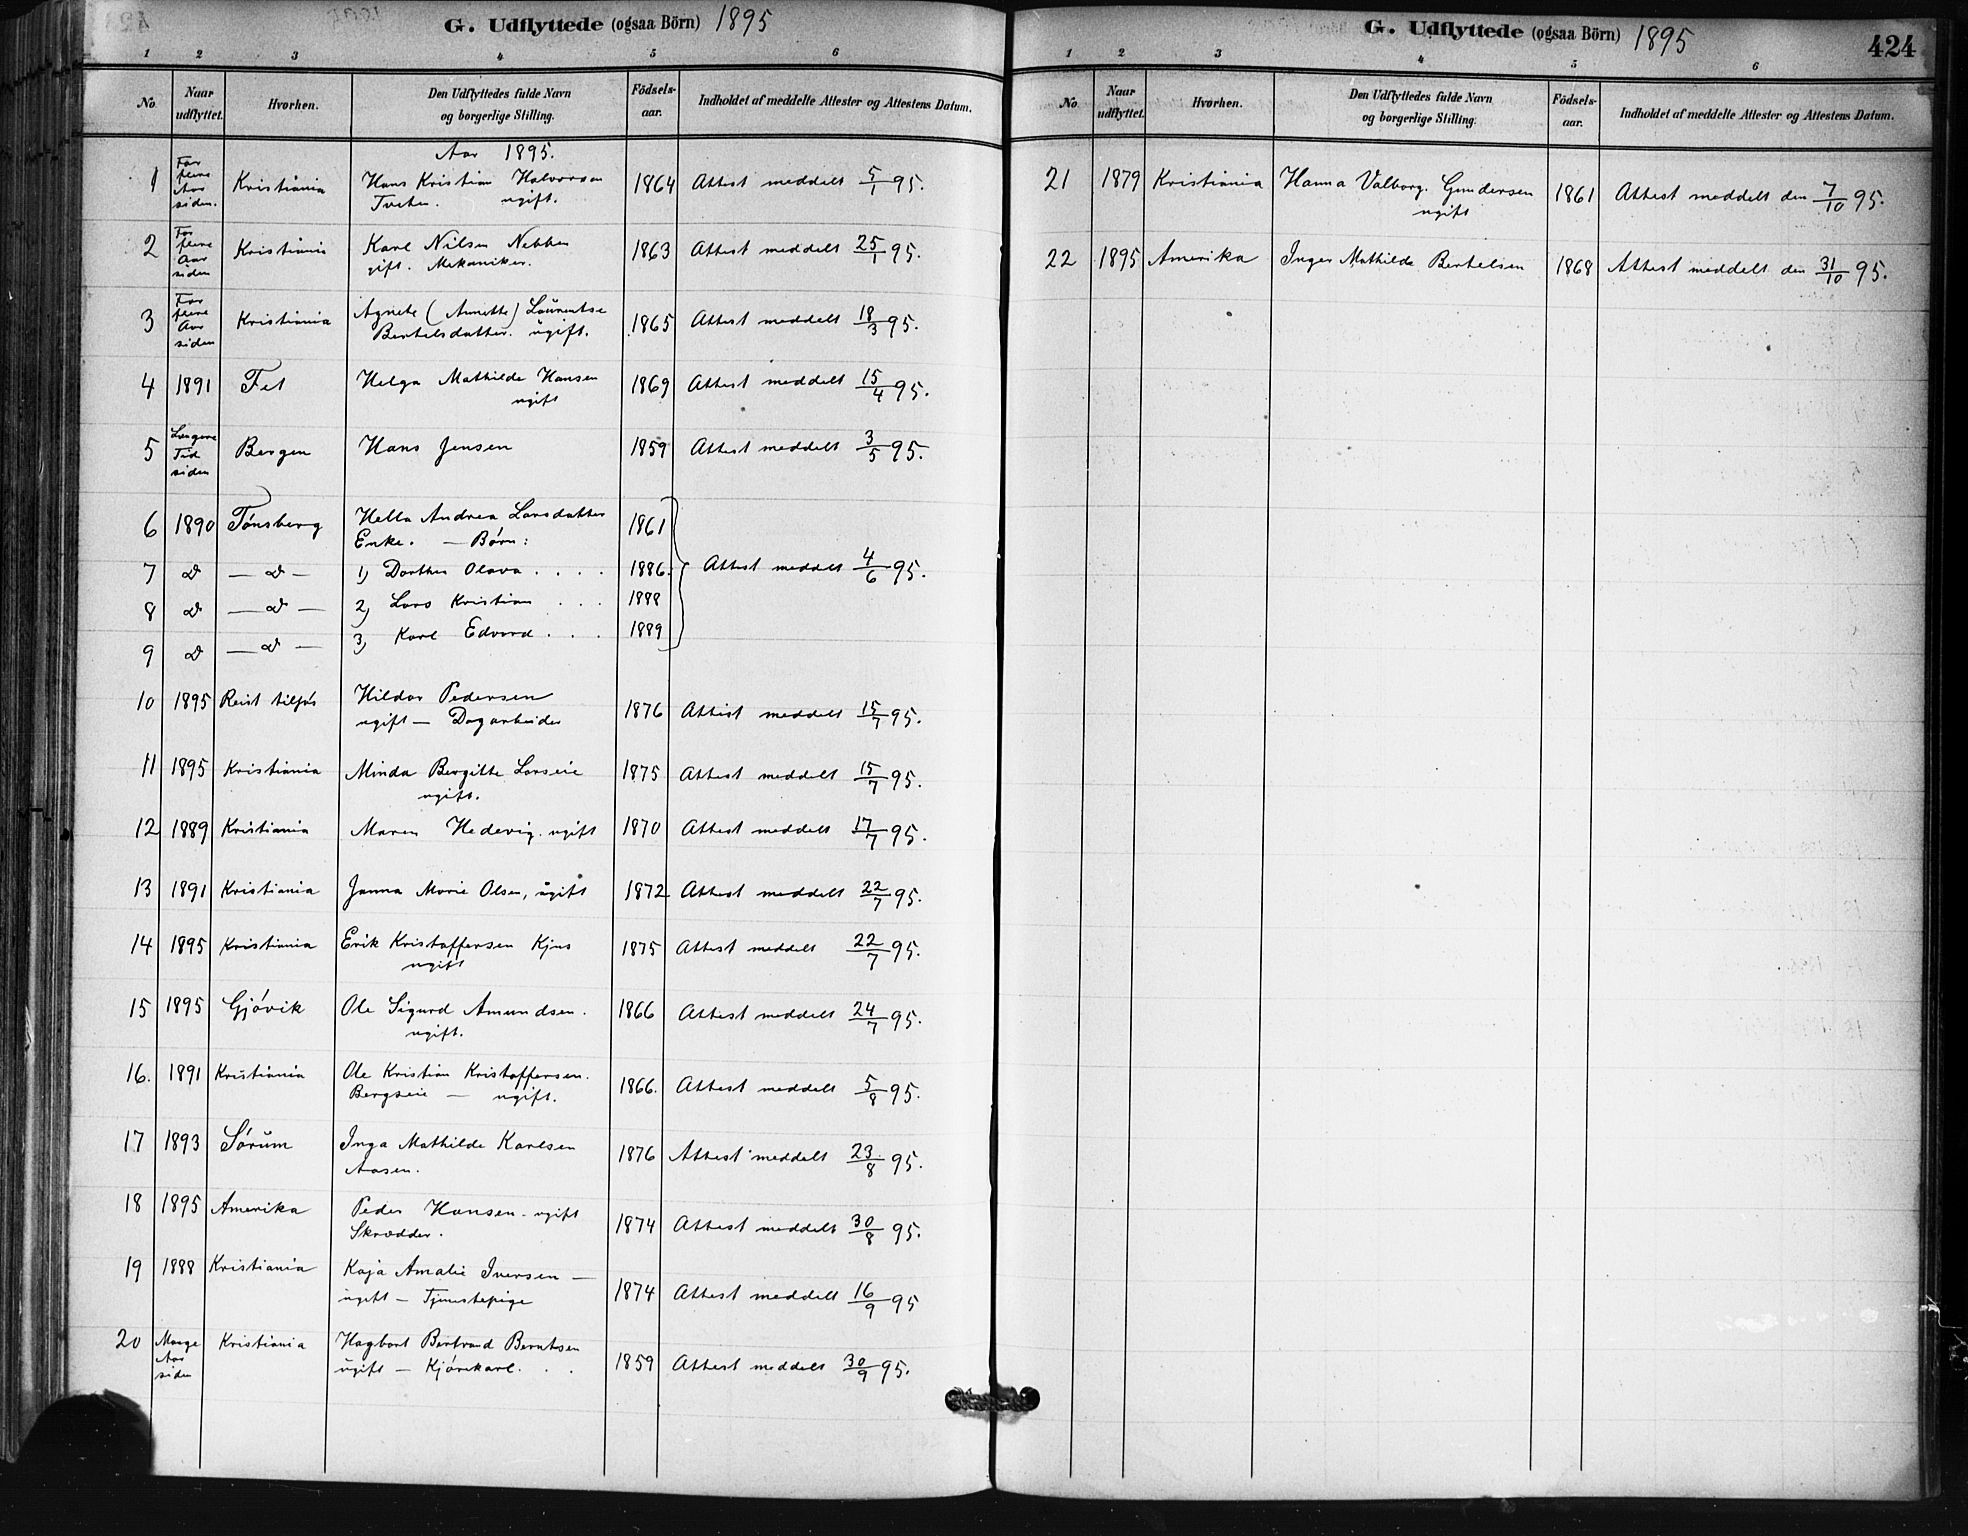 G. Udflyttede (ogsaa Börn) 1895
1 2 3 4 5 6
No
Naar udflyttet.
Hvorhen.
Den Udflyttedes fulde Navn og borgerlige Stilling.
Födsels-aar.
Indholdet af meddelte Attester og Attestens Datum.
Aar 1895.
1 For flere Aar siden. Kristiania Hans Kristian Halvorsen 1864 Attest meddelt 5/1 95.
Tveten. ugift.
2 For flere Aar siden Kristiania Karl Nilsen Nebben 1863 Attest meddelt 25/1 95.
gift. Mekaniker.
3 For flere Aar siden Kristiania Agnete (Annette) Laurentse 1865 Attest meddelt 18/3 95.
Bertelsdatter. ugift.
4 1891 Fet Helga Mathilde Hansen 1869 Attest meddelt 15/4 95.
ugift
5 Længere Tid siden Bergen Hans Jensen 1859 Attest meddelt 3/5 95.
6 1890 Tönsberg Hella Andrea Larsdatter 1861
Enke. — Börn:
7 do — do — 1) Dorthea Olava . . . . 1886. Attest meddelt 4/6 95.
8 do — do — 2) Lars Kristian . . . 1888
9 do — do — 3) Karl Edvard . . . 1889
10 1895 Reist tilsjös Hildor Pedersen 1876 Attest meddelt 15/7 95.
ugift — Dagarbeider
11 1895 Kristiania Minda Bergitte Larseie 1875 Attest meddelt 15/7 95.
ugift.
12 1889 Kristiania Maren Hedevig. ugift 1870 Attest meddelt 17/7 95.
13 1891 Kristiania Janna Marie Olsen, ugift 1872 Attest meddelt 22/7 95.
14 1895 Kristiania Erik Kristoffersen Kjus 1875 Attest meddelt 22/7 95.
ugift
15 1895 Gjövik Ole Sigurd Amundsen. 1866 Attest meddelt 24/7 95.
ugift.
16. 1891 Kristiania Ole Kristian Kristoffersen. 1866. Attest meddelt 5/8 95.
Bergseie — ugift.
17 1893 Sörum Inga Mathilde Karlsen 1876 Attest meddelt 23/8 95.
Aasen.
18 1895 Amerika Peder Hansen - ugift 1874 Attest meddelt 30/8 95.
Skrædder.
19 1888 Kristiania Kaja Amalie Iversen — 1874 Attest meddelt 16/9 95
ugift — Tjenestepige
20 Mange Aar siden Kristiania Hagbart Bertrand Berntsen 1859 Attest meddelt 30/9 95.
ugift — Kjörekarl. . .
G. Udflyttede (ogsaa Börn) 1895
424
1 2 3 4 5 6
No
Naar udflyttet.
Hvorhen.
Den Udflyttedes fulde Navn og borgerlige Stilling.
Födsels-aar.
Indholdet af meddelte Attester og Attestens Datum.
21 1879 Kristiania Hanna Valborg. Gundersen 1861 Attest meddelt den 7/10 95.
ugift
22 1895 Amerika Inger Mathilde Bertelsen 1868 Attest meddelt den 31/10 95.